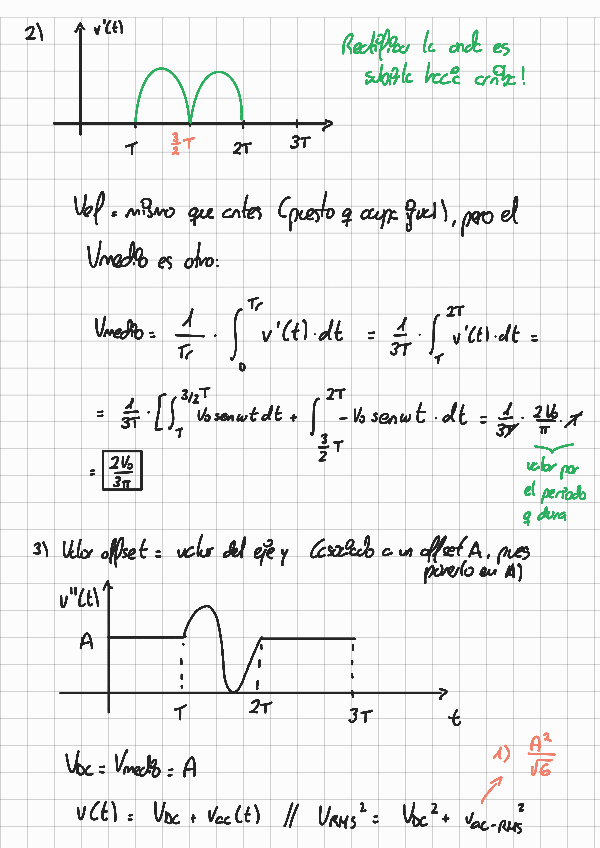 2)
v'(t)
Rectificar la onda es
subirla hacia arriba!
T
3/2 T
2T
3T
Vef = mismo que antes (puesto q ocupa igual), pero el
Vmedio es otro:
Vmedio = 1/Tr · ∫₀^Tr v'(t) · dt = 1/3T · ∫_T^2T v'(t) · dt =
= 1/3T · [∫_T^3/2T V₀ sen wt dt + ∫_3/2T^2T - V₀ sen wt · dt = 1/3T · 2V₀/π · T
= 2V₀/3π
valor por
el periodo
q dura
3) Valor offset = valor del eje y (asociado a un offset A, pues
ponerlo en A)
v''(t)
A
T
2T
3T
t
VDC = Vmedio = A
1) A²/√6
v(t) = VDC + vac(t) // VRMS² = VDC² + vac-RMS²